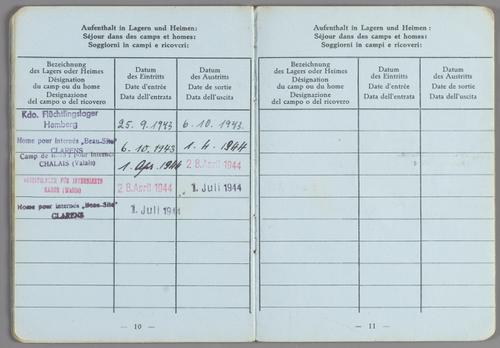 Aufenthalt in Lagern und Heimen:
Séjour dans des camps et homes:
Soggiorni in campi e ricoveri:
Bezeichnung
des Lagers oder Heimes
Désignation
du camp ou du home
Designazione
del campo o del ricovero
Datum
des Eintritts
Date d'entrée
Data dell'entrata
Datum
des Austritts
Date de sortie
Data dell'uscita
Kdo. Flüchtlingslager
Hemberg
25. 9. 1943
6. 10. 1943.
Home pour internés „Beau-Site"
CLARENS
6. 10. 1943
1. 4. 1944
Camp de pour internés
CHALAIS (Valais)
1. Apr. 1944
2 8. April 1944
FÜR INTERNIERTE
2 8. April 1944
1. Juli 1944
Home pour internés „Beau-Site"
CLARENS
1. Juli 1944
— 10 —
Aufenthalt in Lagern und Heimen:
Séjour dans des camps et homes:
Soggiorni in campi e ricoveri:
Bezeichnung
des Lagers oder Heimes
Désignation
du camp ou du home
Designazione
del campo o del ricovero
Datum
des Eintritts
Date d'entrée
Data dell'entrata
Datum
des Austritts
Date de sortie
Data dell'uscita
— 11 —